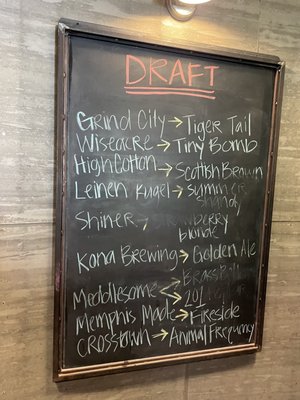 DRAFT
Grind City → Tiger Tail
Wiseacre → Tiny Bomb
High Cotton → Scottish Brown
Leinen Kugel → summer
shandy
Shiner → strawberry
blonde
Kona Brewing → Golden Ale
Meddlesome → 201
Memphis Made → Fireside
CROSSTOWN → Animal Frequency